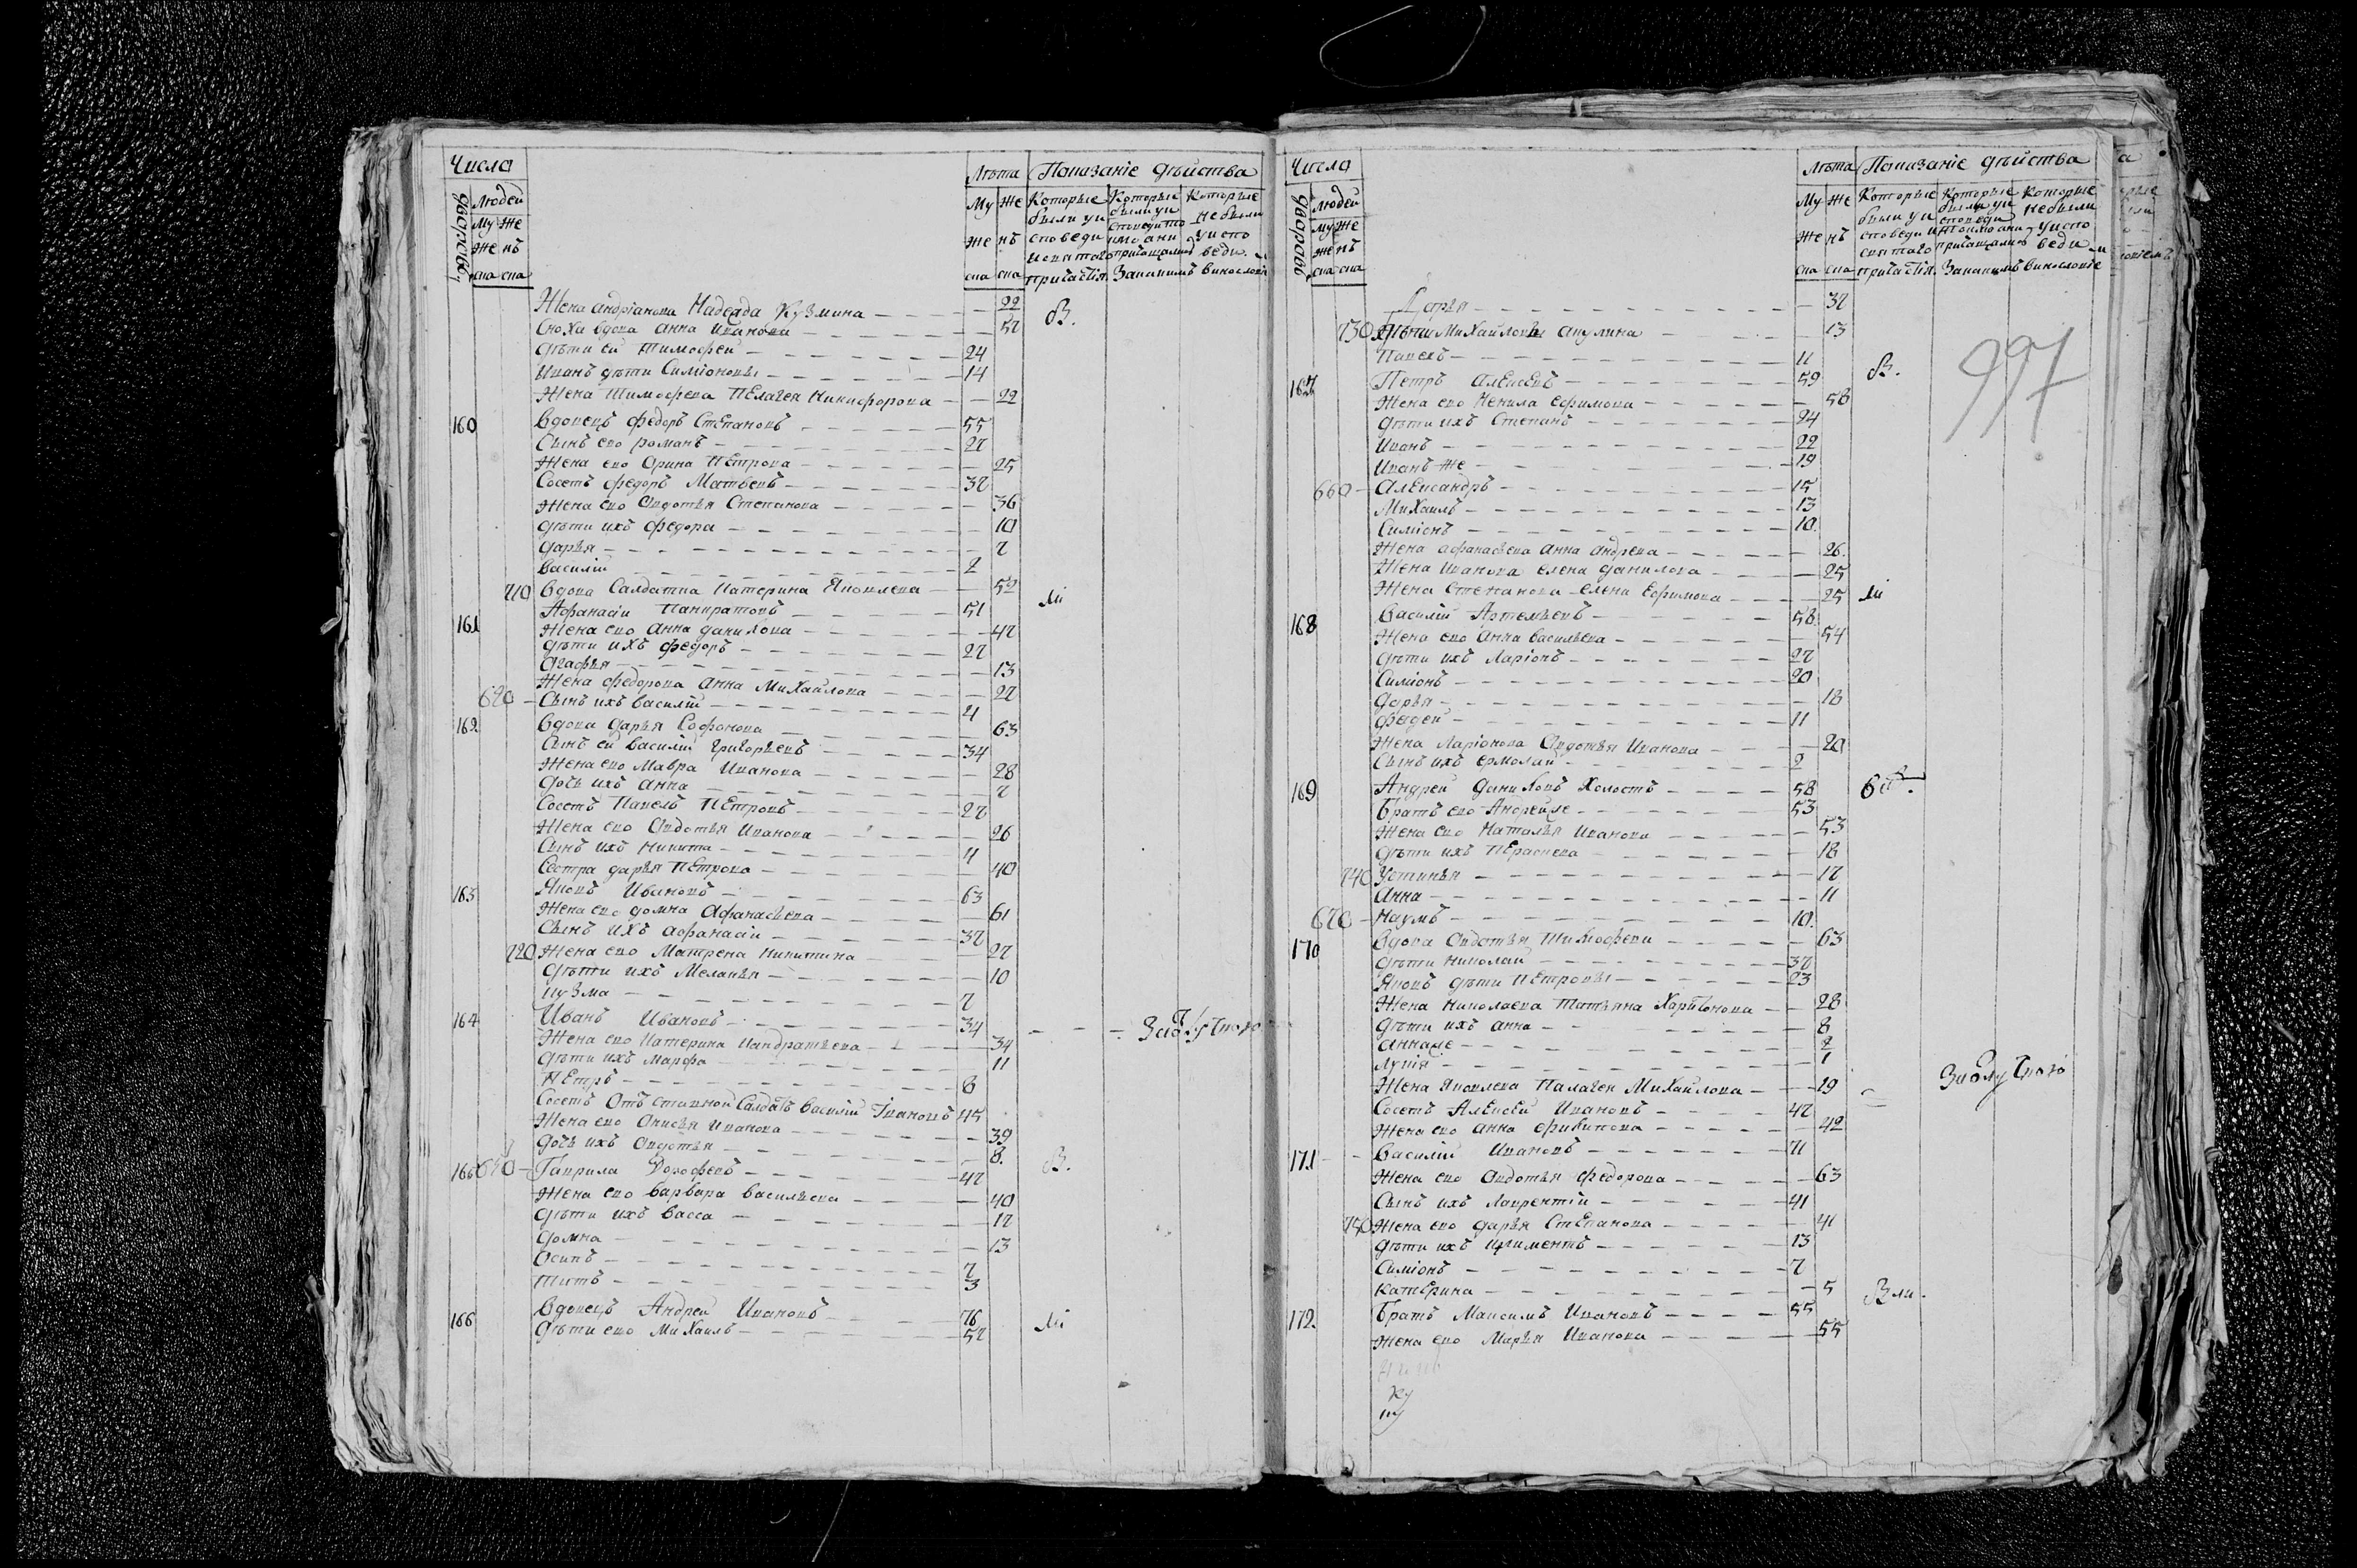 Числа
Лѣта Показаніе дѣйства
дворовъ
Людей
Му Же
же нъ
ска ска
Му Же
же нъ
ска ска
Которые были у исповеди и святаго причастія
Которые были у исповеди токмо а не причащались За какимъ
Которые не были у исповеди винословіемъ
Жена андріанова Надежда Кузмина — 22 В.
Сноха вдова анна иванова — 57
дѣти ей тимофей — 24
Иванъ дѣти Симіоновы — 14
Жена тимофеева Пелагея Никифорова — 22
160 Вдовецъ федоръ Степановъ — 55
Сынъ ево романъ — 27
Жена ево орина Петрова — 25
Соседъ федоръ Матвеевъ — 37
Жена ево Овдотья Степанова — 36
дѣти ихъ федора — 10
дарья — 7
василій — 2
710 вдова Салдатка Катерина Яковлева — 52
161 Афанасіи Панкратовъ — 51 Ли
Жена ево анна данилова — 47
дѣти ихъ федоръ — 27
Агафья — 13
Жена федорова анна Михайлова — 27
620 Сынъ ихъ василій — 4
162 вдова дарья Софонова — 63
Сынъ ей василій григорьевъ — 34
Жена ево Мавра Иванова — 28
дочь ихъ анна — 7
Соседъ Павелъ Петровъ — 27
Жена ево Овдотья Иванова — 26
Сынъ ихъ Никита — 4
Сестра дарья Петрова — 40
163 Яковъ Ивановъ — 63
Жена ево домна Афанасьева — 61
Сынъ ихъ афанасіи — 37
720 Жена ево Матрена Никитина — 27
дѣти ихъ Меланья — 10
кузма — 7
164 Иванъ Ивановъ — 34
Жена ево Катерина Кандратьева — 34
дѣти ихъ марфа — 11
Петръ — 8
Соседъ Отъставной Салдатъ василій Івановъ 45
Жена ево Анисья иванова — 39
дочь ихъ Овдотья — 8.
165 Гаврила Дорофеевъ — 47 В.
Жена ево варвара васильева — 40
дѣти ихъ васса — 17
домна — 13
Осипъ — 7
титъ — 3
166 Вдовецъ Андрей Ивановъ — 76
дѣти ево Михаилъ — 52 Ли
Числа
Лѣта Показаніе дѣйства
дворовъ
Людей
Му Же
же нъ
ска ска
Му Же
же нъ
ска ска
Которые были у исповеди и святаго причастія
Которые были у исповеди токмо а не причащались За какимъ
Которые не были у исповеди винословіе
997
Дарья — 37
730 дѣти Михайловы акулина — 13
Павелъ — 11
167 Петръ Алексеевъ — 59 В.
Жена ево Ненила Ефимова — 58
дѣти ихъ Степанъ — 24
Иванъ — 22
Иванъ же — 19
660 Александръ — 15
Михаилъ — 13
Симіонъ — 10.
Жена афанасьева анна андреева — 26.
Жена Иванова елена данилова — 25
Жена Степанова елена Ефимова — 25 Ли
168 Василій Артемьевъ — 58
Жена ево Анна васильева — 54
дѣти ихъ Ларіонъ — 27
Симіонъ — 20
дарья — 18
фадей — 11
Жена Ларіонова Овдотья Иванова — 20
Сынъ ихъ ермолай — 2
169 Андрей Даниловъ Холостъ — 58
Братъ ево Андрейже — 53
Жена ево Наталья Иванова — 53
дѣти ихъ Параскева — 18
740 Устинья — 17
Анна — 11
670 Наумъ — 10.
170 вдова Овдотья Тимофеева — 63
дѣти Николай — 37
Яковъ дѣти Петровы — 23
Жена Николаева Татьяна Харитонова — 28
дѣти ихъ анна — 8
аннаже — 2
Лукія — 1
Жена Яковлева Палагея Михайлова — 19
Соседъ Алексей Ивановъ — 47
Жена ево анна — 42
171 Василій Ивановъ — 71
Жена ево Овдотья федорова — 63
Сынъ ихъ Лаврентій — 41
750 Жена ево дарья Степанова — 41
дѣти ихъ климентъ — 13
Симіонъ — 7
катерина — 5
172. Братъ Максимъ Ивановъ — 55
Жена ево Марья Иванова — 55